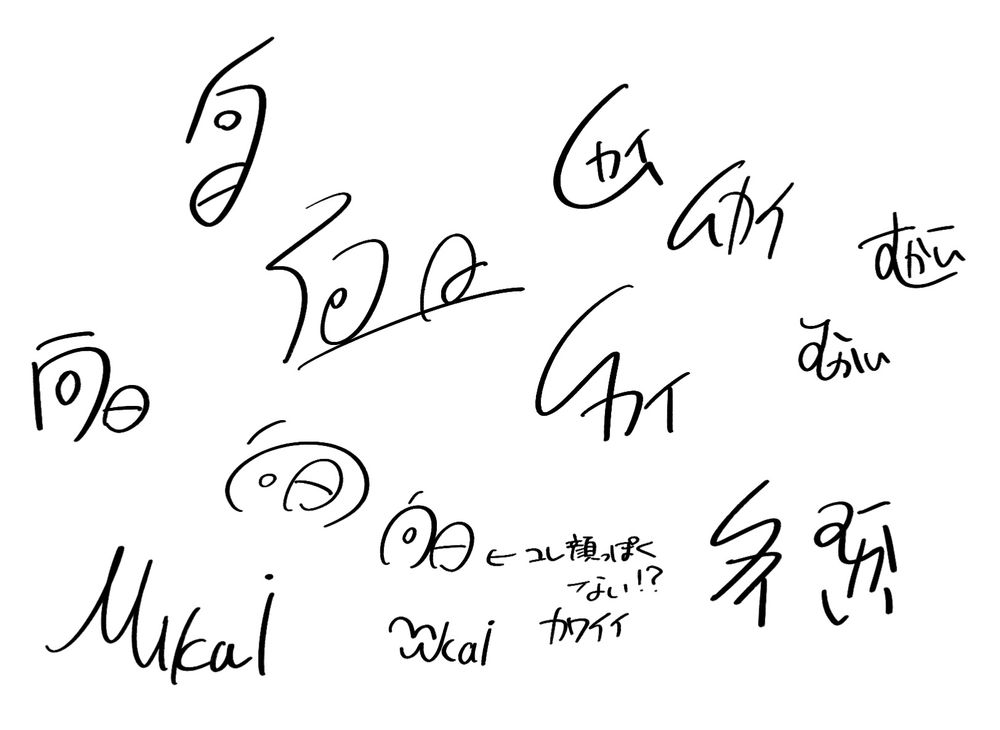 向日
ムカイ
ムカイ
向日
むかい
ムカイ
むかい
向日
向日
向日
←コレ顔っぽく
てない!?
カワイイ
ムカイ
むかい
Mukai
mukai